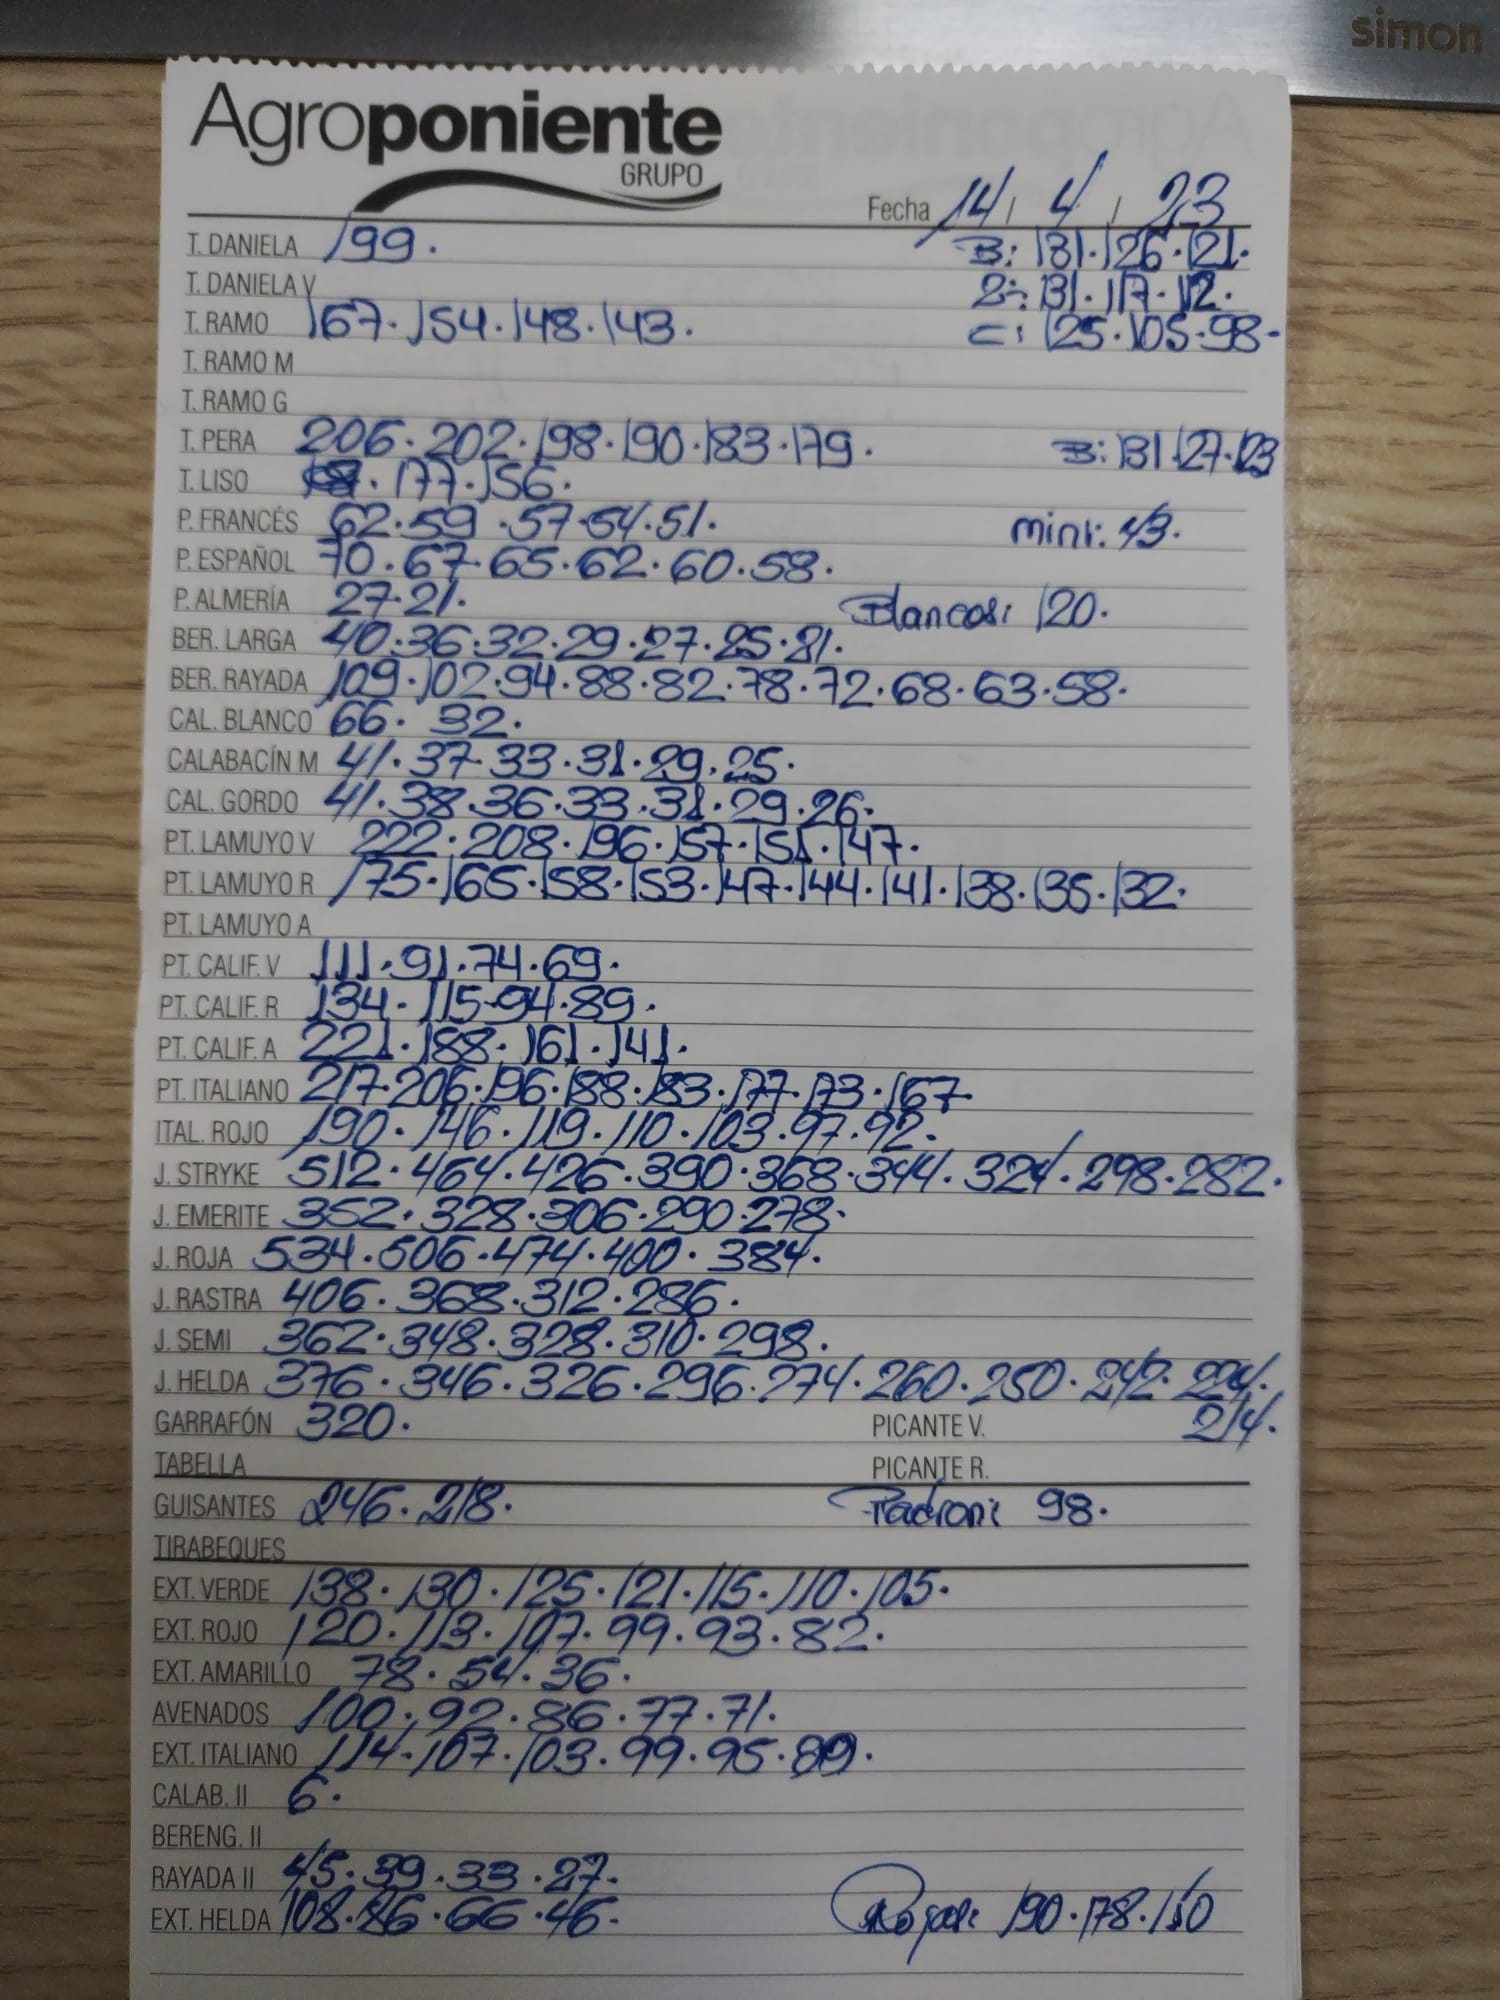 simon
Agroponiente
GRUPO
Fecha 14 / 4 / 23
T. DANIELA 199. B: 131.126.121.
T. DANIELA V 2: 131.117.112.
T. RAMO 167.154.148.143. C: 125.105.98.
T. RAMO M
T. RAMO G
T. PERA 206.202.198.190.183.179. B: 131.127.123
T. LISO 177.156.
P. FRANCÉS 62.59.57.54.51. mini: 43.
P. ESPAÑOL 70.67.65.62.60.58.
P. ALMERÍA 27.21. Blancos: 120.
BER. LARGA 40.36.32.29.27.25.21.
BER. RAYADA 109.102.94.88.82.78.72.68.63.58.
CAL. BLANCO 66. 32.
CALABACÍN M 41.37.33.31.29.25.
CAL. GORDO 41.38.36.33.31.29.26.
PT. LAMUYO V 222.208.196.157.151.147.
PT. LAMUYO R 175.165.158.153.147.144.141.138.135.132.
PT. LAMUYO A
PT. CALIF. V 111.91.74.69.
PT. CALIF. R 134.115.94.89.
PT. CALIF. A 221.188.161.141.
PT. ITALIANO 217.206.196.188.183.177.173.167.
ITAL. ROJO 190.146.119.110.103.97.92.
J. STRYKE 512.464.426.390.368.344.324.298.282.
J. EMERITE 352.328.306.290.278.
J. ROJA 534.506.474.400.384.
J. RASTRA 406.368.312.286.
J. SEMI 362.348.328.310.298.
J. HELDA 376.346.326.296.274.260.250.242.224.
GARRAFÓN 320. PICANTE V. 214.
TABELLA PICANTE R.
GUISANTES 246.218. Padron: 98.
TIRABEQUES
EXT. VERDE 138.130.125.121.115.110.105.
EXT. ROJO 120.113.107.99.93.82.
EXT. AMARILLO 78.54.36.
AVENADOS 100.92.86.77.71.
EXT. ITALIANO 114.107.103.99.95.89.
CALAB. II 6.
BERENG. II
RAYADA II 45.39.33.27.
EXT. HELDA 108.86.66.46. Rojas: 190.178.150